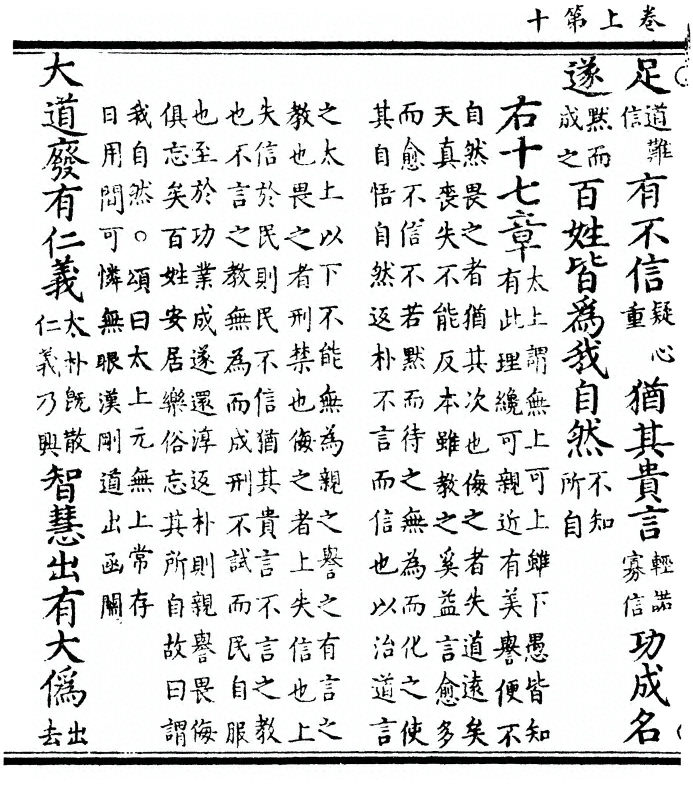 卷上第十
足道難信有不信疑心重猶其貴言輕諾寡信功成名
遂默而成之百姓皆為我自然不知所自
右十七章太上謂無上可上雖下愚皆知
有此理纔可親近有美譽便不
自然畏之者猶其次也侮之者失道遠矣
天真喪失不能反本雖教之奚益言愈多
而愈不信不若默而待之無為而化之使
其自悟自然返朴不言而信也以治道言
之太上以下不能無為親之譽之有言之
教也畏之者刑禁也侮之者上失信也上
失信於民則民不信猶其貴言不言之教
也不言之教無為而成刑不試而民自服
也至於功業成遂還淳返朴則親譽畏侮
俱忘矣百姓安居樂俗忘其所自故曰謂
我自然○頌曰太上元無上常存
日用間可憐無眼漢剛道出函關
大道廢有仁義太朴既散仁義乃興智慧出有大偽出去